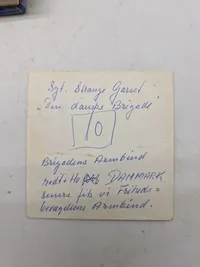 Sgt. Strange Garset
"Den danske Brigade"
10
Brigadens Armbind
rødt + Hv DANMARK
senere fik vi Friheds=
bevægelsens Armbind.